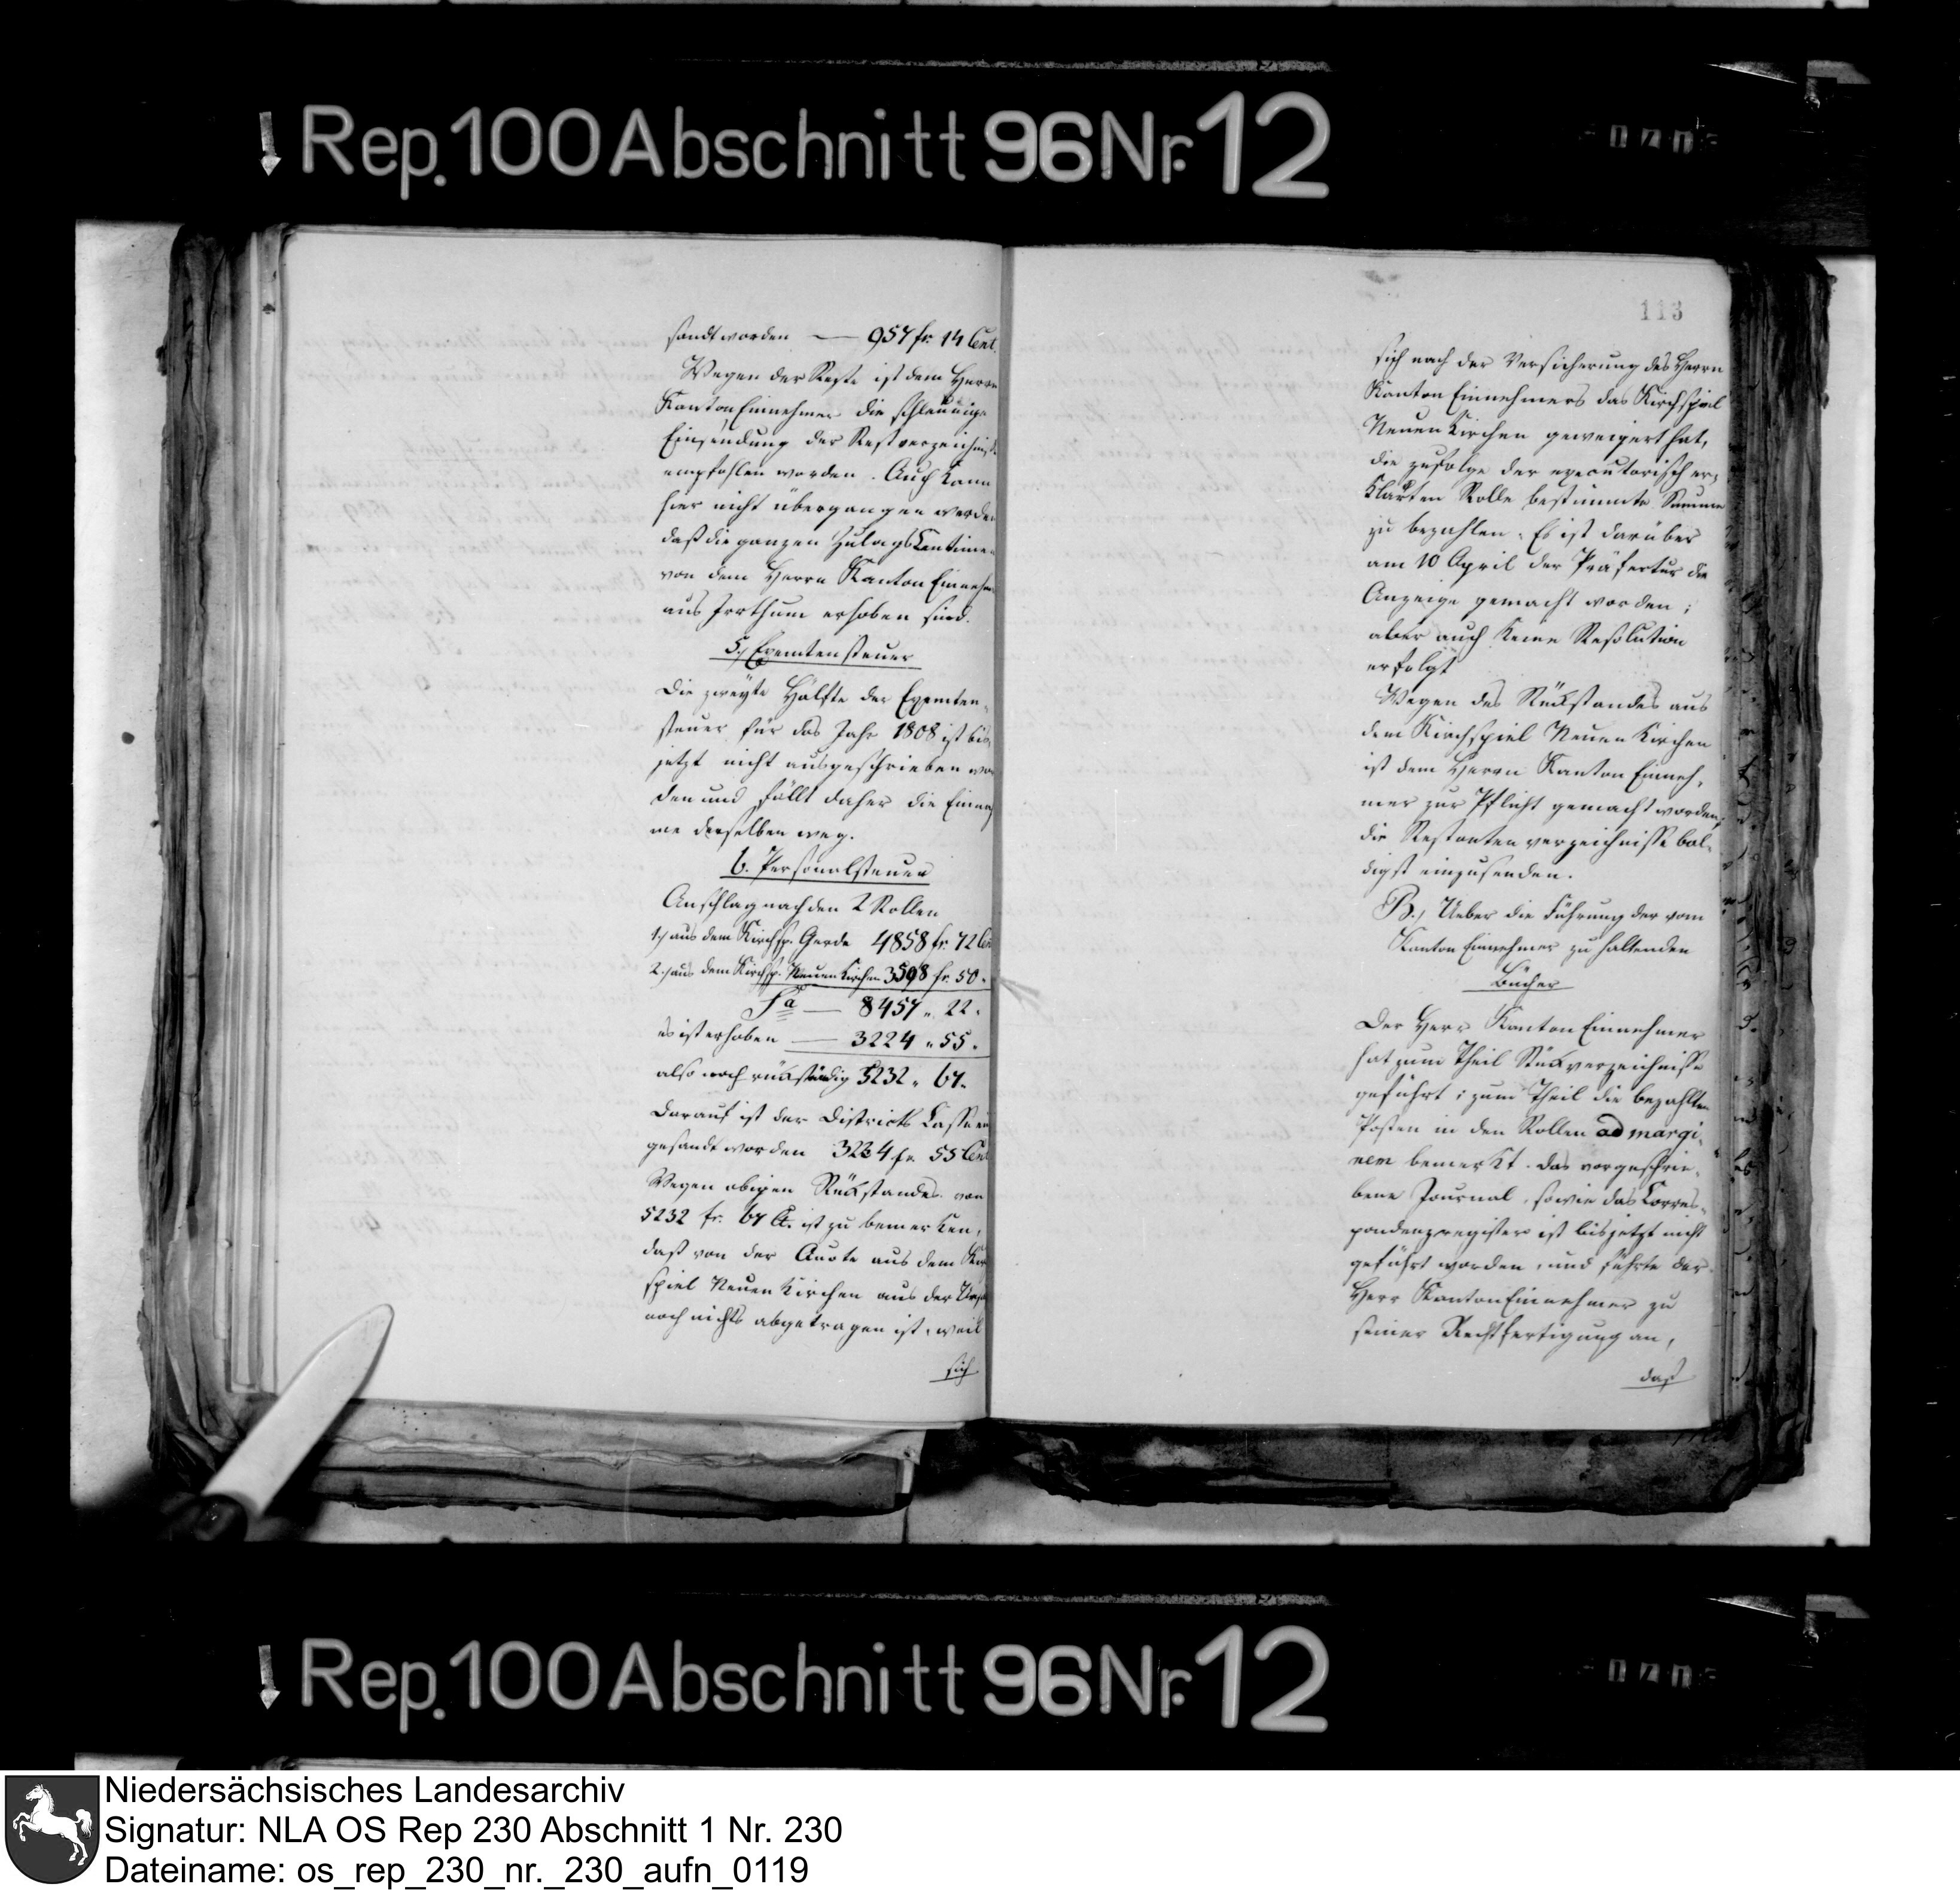 Rep. 100 Abschnitt 96 Nr. 12
sandt worden — 957 fr. 14 Cent.
Wegen der Reste ist dem Herrn
Kanton Einnehmer die schleunige
Einsendung der Restverzeichniße
empfohlen worden. Auch kann
hier nicht übergangen werden
daß die ganzen Zulags Centimen
von dem Herrn Kanton Einnehmer
aus Irrthum erhoben sind.
5., Exemtensteuer
Die zweyte Hälfte der Exemten-
steuer für das Jahr 1808 ist bis
jetzt nicht ausgeschrieben wor
den und fällt daher die Einnah
me derselben weg.
6. Personalsteuer
Anschlag nach den 2 Rollen
1., aus dem Kirchsp. Gerde 4858 fr. 72 Cen
2., aus dem Kirchsp. Neuenkirchen 3598 fr. 50.
Sa — 8457 „ 22.
es ist erhoben — 3224 „ 55.
also noch rückständig 5232 „ 67.
Darauf ist der Districts Casse ein
gesandt worden 3224 fr. 55 Cent
Wegen obigen Rückstandes von
5232 fr. 67 C. ist zu bemerken,
daß von der Quote aus dem Kir
spiel Neuenkirchen aus der
noch nichts abgetragen ist, weil
sich
113
sich nach der Versicherung des Herrn
Kanton Einnehmers das Kirchspiel
Neuenkirchen geweigert hat,
die zufolge der executorisch er-
klärten Rolle bestimmte Summe
zu bezahlen. Es ist darüber
am 10 April der Präfectur die
Anzeige gemacht worden;
aber auch keine Resolution
erfolgt
Wegen des Rückstandes aus
dem Kirchspiel Neuenkirchen
ist dem Herrn Kanton Einneh-
mer zur Pflicht gemacht worden,
die Restantenverzeichnisse bal-
digst einzusenden.
B., Ueber die Führung der vom
Kanton Einnehmer zu haltenden
Bücher
Der Herr Kanton Einnehmer
hat zum Theil Stückverzeichnisse
geführt; zum Theil die bezahlten
Posten in den Rollen ad margi-
nem bemerkt. Das vorgeschrie-
bene Journal, sowie das Corres-
pondenzregister ist bis jetzt nicht
geführt worden, und führte der
Herr Kanton Einnehmer zu
seiner Rechtfertigung an,
daß
Rep. 100 Abschnitt 96 Nr. 12
Niedersächsisches Landesarchiv
Signatur: NLA OS Rep 230 Abschnitt 1 Nr. 230
Dateiname: os_rep_230_nr._230_aufn_0119